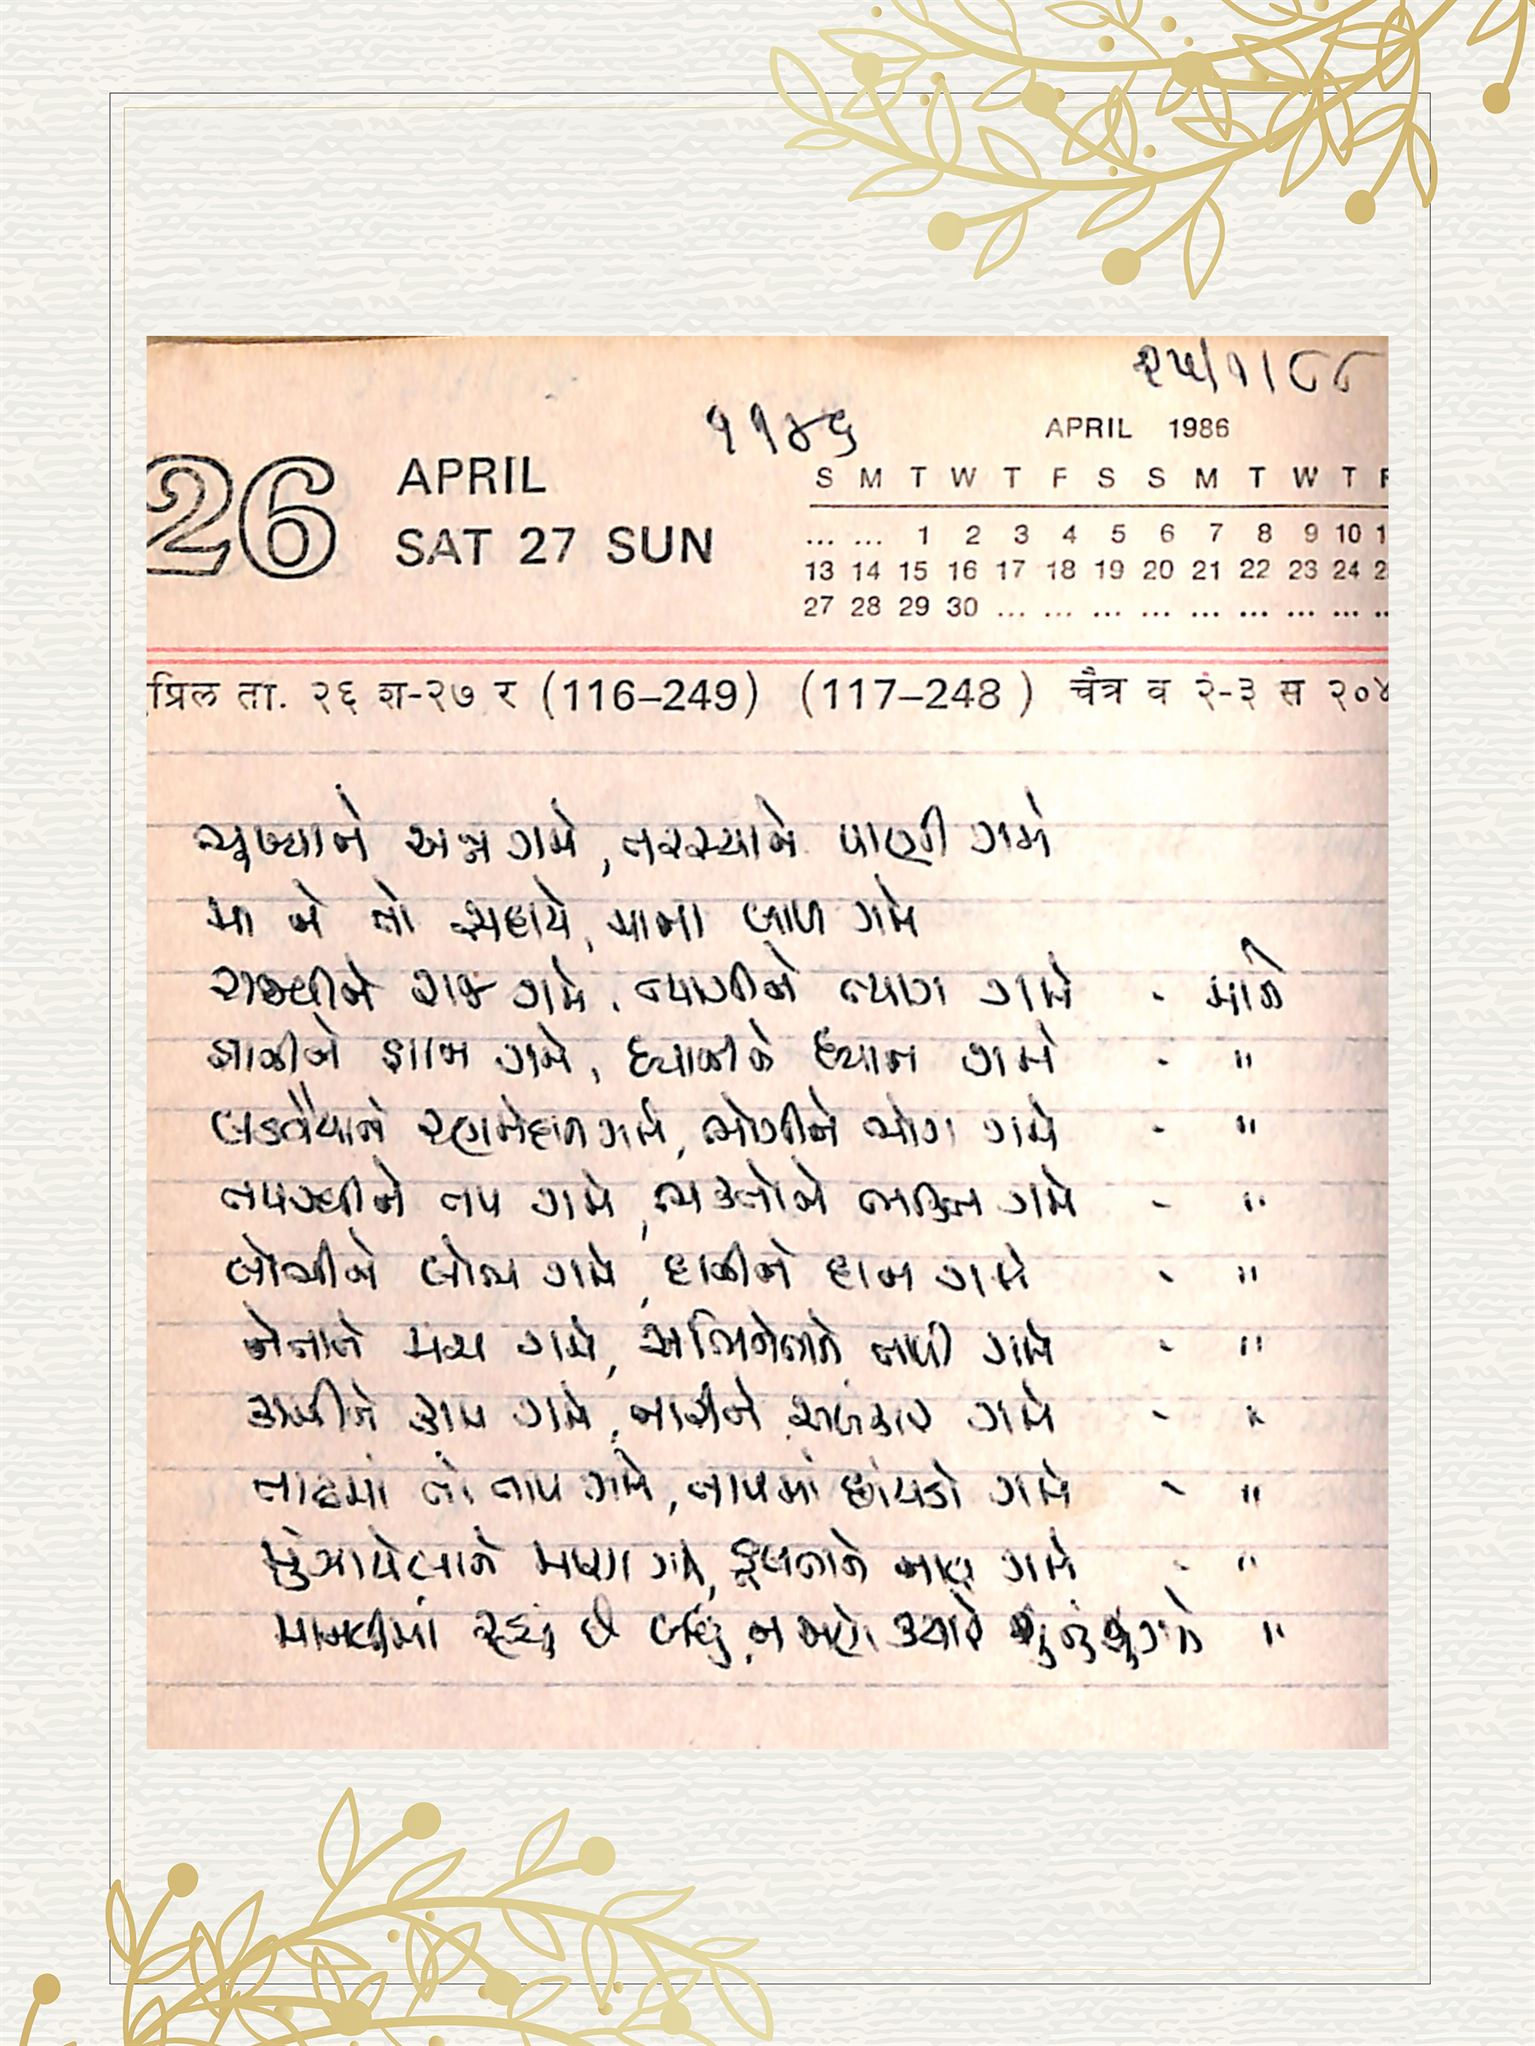 ૨૫/૧/૮૮
૧૧૪૬
APRIL 1986
26 APRIL
SAT 27 SUN
S M T W T F S S M T W T F
... ... 1 2 3 4 5 6 7 8 9 10 1
13 14 15 16 17 18 19 20 21 22 23 24 2
27 28 29 30 ... ... ... ... ... ... ... ... ..
प्रिल ता. २६ श-२७ र (116–249) (117–248) चैत्र व २-३ स २०४
ભૂખ્યાને અન્ન ગમે, તરસ્યાને પાણી ગમે
મા ને તો સદાયે, માના બાળ ગમે
રાજવીને રાજ ગમે, ત્યાગીને ત્યાગ ગમે - માને
જ્ઞાનીને જ્ઞાન ગમે, ધ્યાનીને ધ્યાન ગમે - "
લડવૈયાને રણમેદાન ગમે, ભોગીને ભોગ ગમે - "
તપસ્વીને તપ ગમે, ભક્તોને ભક્તિ ગમે - "
લોભીને લોભ ગમે, દાનીને દાન ગમે - "
નેતાને મંચ ગમે, અભિનેતાને તાળી ગમે - "
કામીને કામ ગમે, નારીને અલંકાર ગમે - "
તાઢમાં તો તાપ ગમે, તાપમાં છાંયડો ગમે - "
મુંઝાયેલાને મારગ ગમે, ડૂબતાને નાવ ગમે - "
માનવીમાં રહ્યું છે બધું, ન જાણે ક્યારે શું નું શું ગમે "